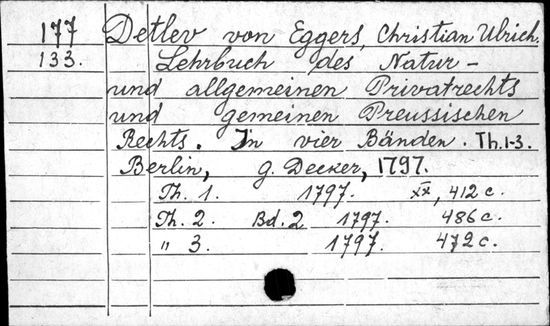 177 Detlev von Eggers, Christian Ulrich.
133. Lehrbuch des Natur-
und allgemeinen Privatrechts
und gemeinen Preussischen
Rechts. In vier Bänden. Th. 1-3.
Berlin, g. Decker, 1797.
Th. 1. 1797. XX, 412 c.
Th. 2. Bd. 2 1797. 486 c.
" 3. 1797. 472 c.